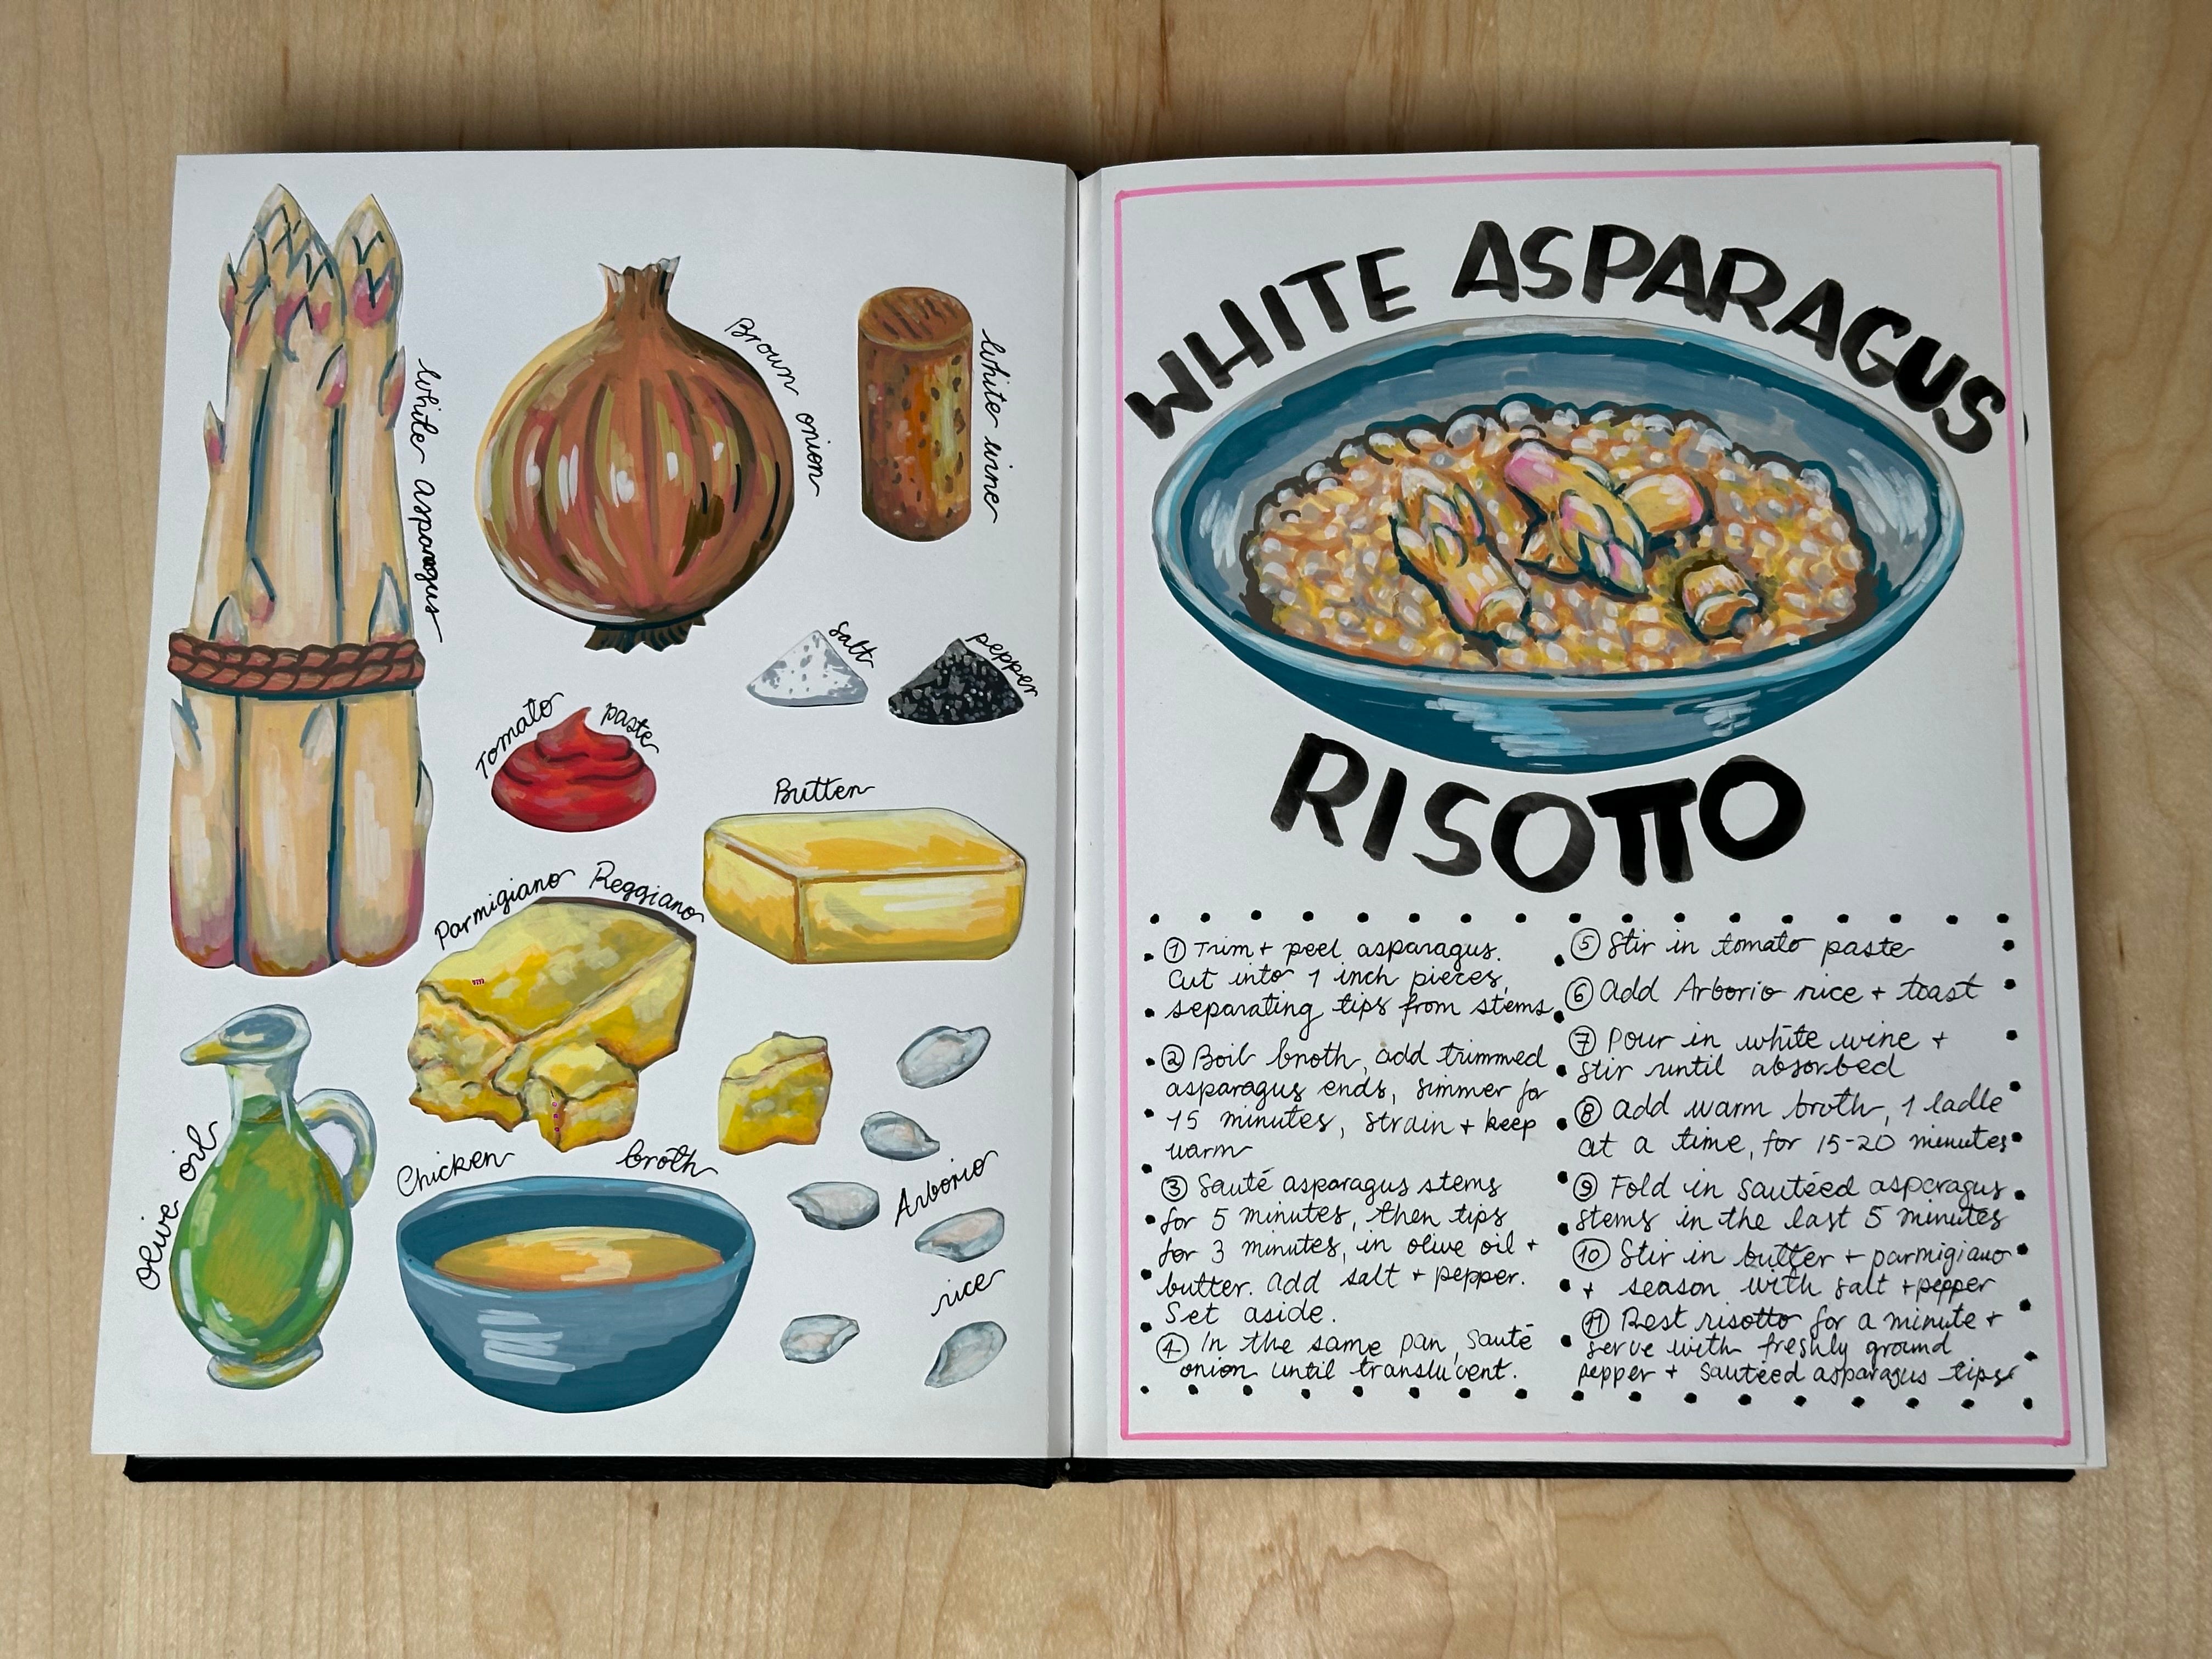 White asparagus
Brown onion
White wine
salt
pepper
Tomato paste
Butter
Parmigiano Reggiano
Olive oil
Chicken broth
Arborio
rice
WHITE ASPARAGUS
RISOTTO
① Trim + peel asparagus.
Cut into 1 inch pieces,
separating tips from stems.
② Boil broth, add trimmed
asparagus ends, simmer for
15 minutes, strain + keep
warm
③ Sauté asparagus stems
for 5 minutes, then tips
for 3 minutes, in olive oil +
butter. Add salt + pepper.
Set aside.
④ In the same pan, sauté
onion until translucent.
⑤ Stir in tomato paste
⑥ Add Arborio rice + toast
⑦ Pour in white wine +
stir until absorbed
⑧ Add warm broth, 1 ladle
at a time, for 15-20 minutes
⑨ Fold in sautéed asparagus
stems in the last 5 minutes
⑩ Stir in butter + parmigiano
+ season with salt + pepper
⑪ Rest risotto for a minute +
serve with freshly ground
pepper + sautéed asparagus tips